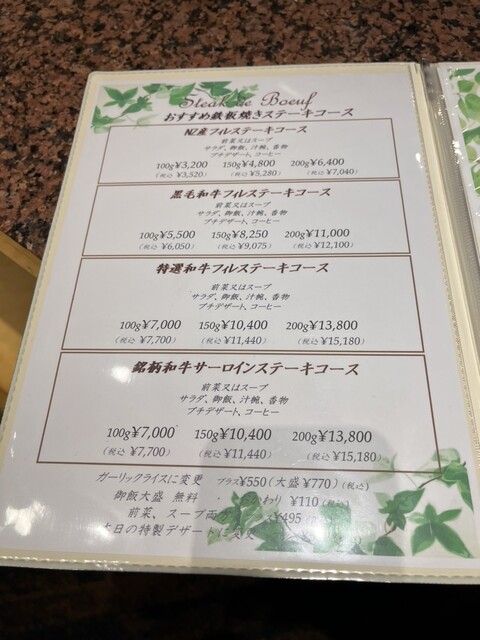 Steak de Boeuf
おすすめ鉄板焼きステーキコース
NZ産フィレステーキコース
前菜又はスープ
サラダ、御飯、汁椀、香物
プチデザート、コーヒー
100g¥3,200 150g¥4,800 200g¥6,400
(税込 ¥3,520) (税込 ¥5,280) (税込 ¥7,040)
黒毛和牛フィレステーキコース
前菜又はスープ
サラダ、御飯、汁椀、香物
プチデザート、コーヒー
100g¥5,500 150g¥8,250 200g¥11,000
(税込 ¥6,050) (税込 ¥9,075) (税込 ¥12,100)
特選和牛フィレステーキコース
前菜又はスープ
サラダ、御飯、汁椀、香物
プチデザート、コーヒー
100g¥7,000 150g¥10,400 200g¥13,800
(税込 ¥7,700) (税込 ¥11,440) (税込 ¥15,180)
銘柄和牛サーロインステーキコース
前菜又はスープ
サラダ、御飯、汁椀、香物
プチデザート、コーヒー
100g¥7,000 150g¥10,400 200g¥13,800
(税込 ¥7,700) (税込 ¥11,440) (税込 ¥15,180)
ガーリックライスに変更 プラス¥550(大盛 ¥770)(税込)
御飯大盛 無料 わり ¥110(税込)
前菜、スープ両 ¥495
本日の特製デザートに変更